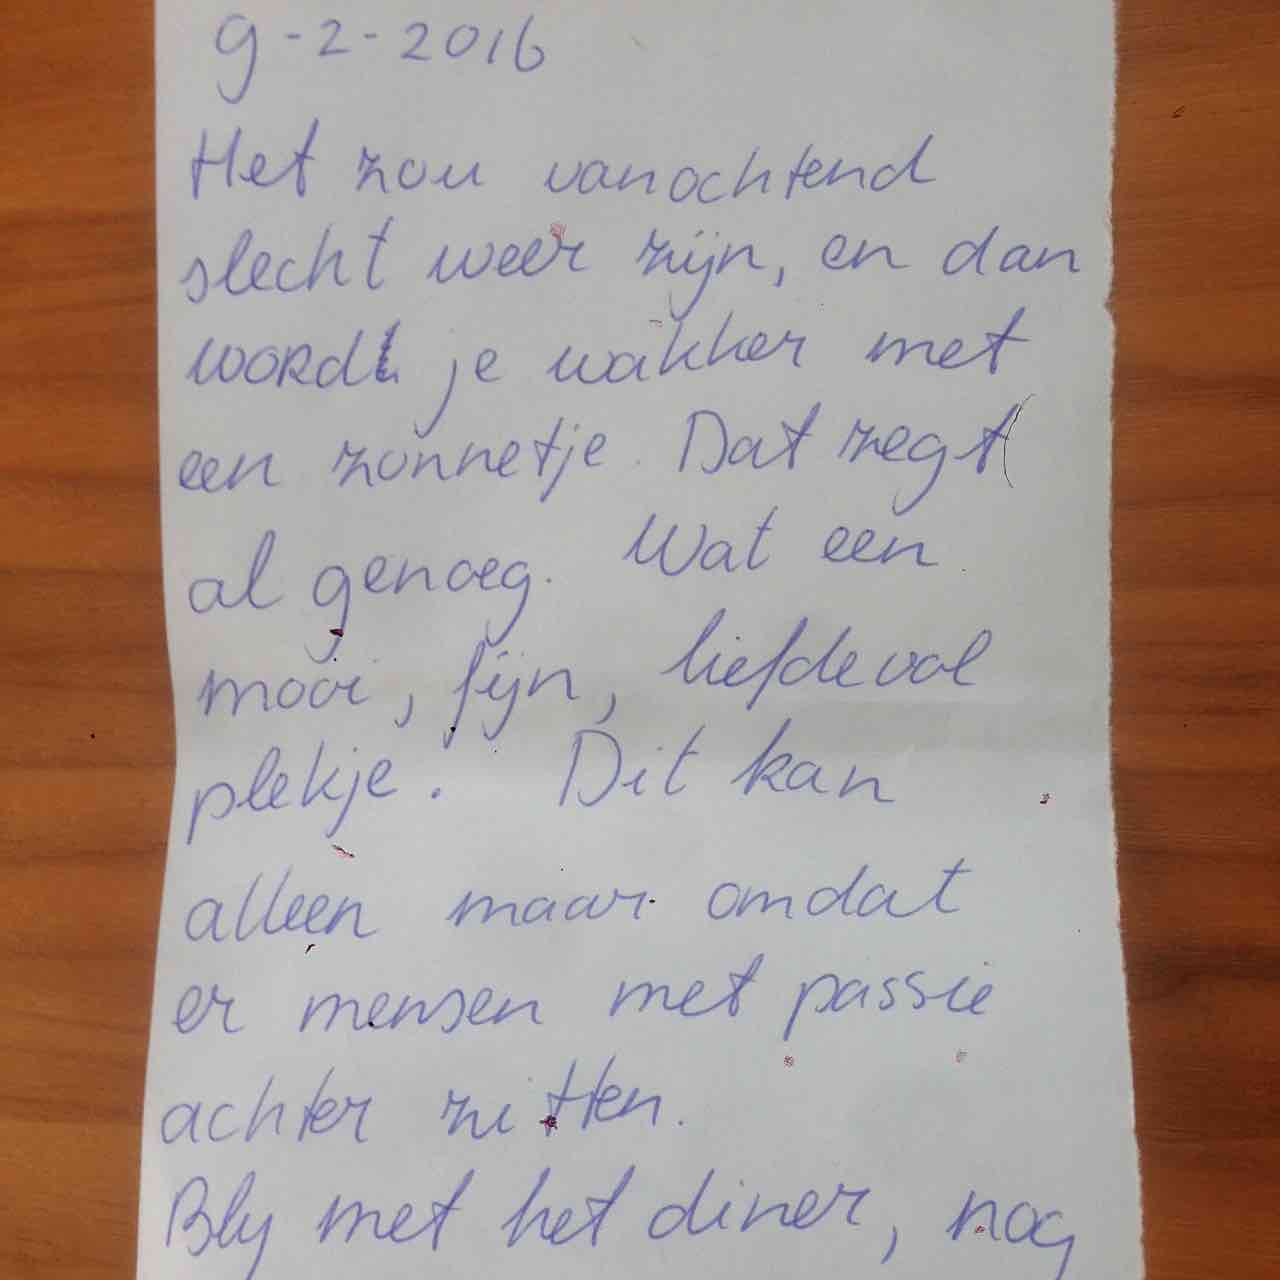 9-2-2016
Het zou vanochtend
slecht weer zijn, en dan
word je wakker met
een zonnetje. Dat zegt
al genoeg. Wat een
mooi, fijn, liefdevol
plekje. Dit kan
alleen maar omdat
er mensen met passie
achter zitten.
Bly met het diner, nog